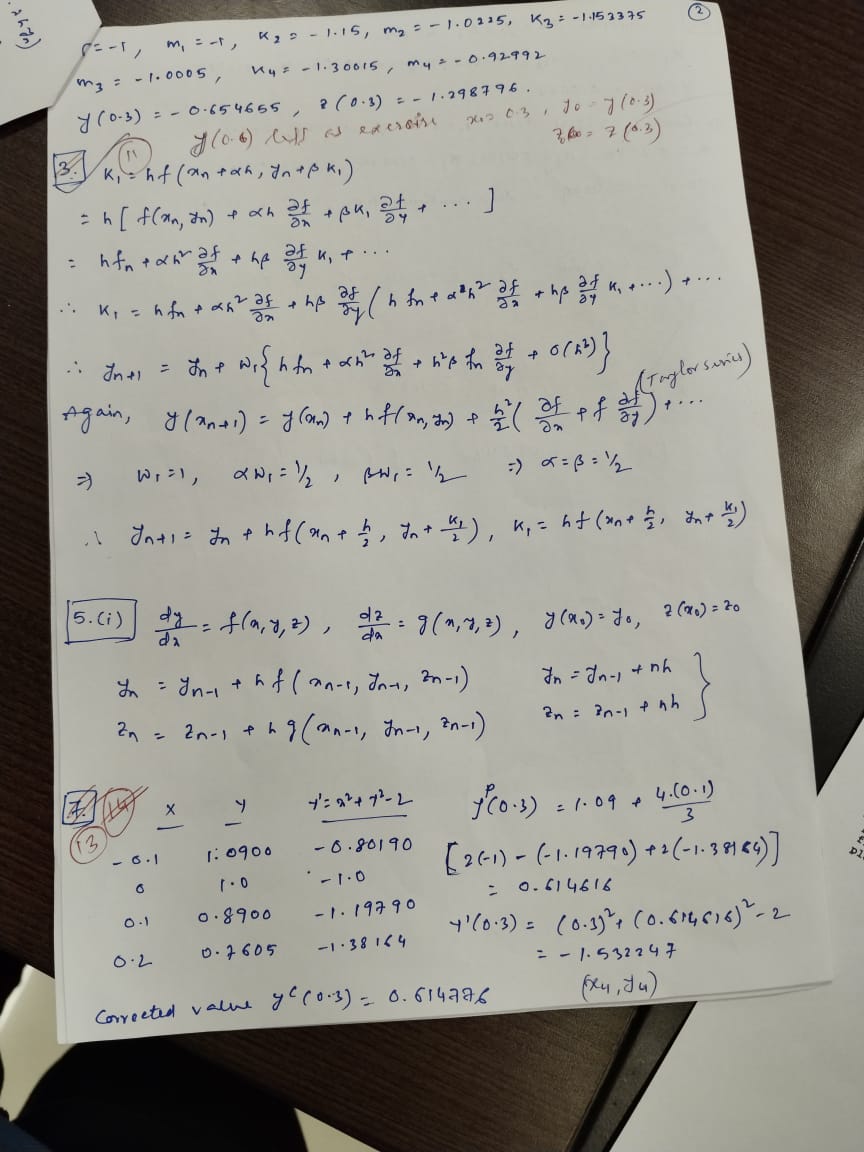 ②
= -1, m₁ = -1, K₂ = -1.15, m₂ = -1.0225, K₃ = -1.153375
m₃ = -1.0005, K₄ = -1.30015, m₄ = -0.92992
y(0.3) = -0.654655, z(0.3) = -1.298796.
y(0.6) left as exercise x₀ = 0.3, y₀ = y(0.3)
z₀ = z(0.3)
3. 11 K₁ = hf(xₙ + αh, yₙ + βK₁)
= h[f(xₙ, yₙ) + αh ∂f/∂x + βK₁ ∂f/∂y + ...]
= hfₙ + αh² ∂f/∂x + hβ ∂f/∂y K₁ + ...
∴ K₁ = hfₙ + αh² ∂f/∂x + hβ ∂f/∂y (hfₙ + αh² ∂f/∂x + hβ ∂f/∂y K₁ + ...) + ...
∴ yₙ₊₁ = yₙ + W₁{hfₙ + αh² ∂f/∂x + h²β fₙ ∂f/∂y + O(h²)}
Again, y(xₙ₊₁) = y(xₙ) + hf(xₙ, yₙ) + h²/2 (∂f/∂x + f ∂f/∂y) + ... (Taylor series)
⇒ W₁ = 1, αW₁ = 1/2, βW₁ = 1/2 ⇒ α = β = 1/2
∴ yₙ₊₁ = yₙ + hf(xₙ + h/2, yₙ + K₁/2), K₁ = hf(xₙ + h/2, yₙ + K₁/2)
5.(i) dy/dx = f(x, y, z), dz/dx = g(x, y, z), y(x₀) = y₀, z(x₀) = z₀
yₙ = yₙ₋₁ + hf(xₙ₋₁, yₙ₋₁, zₙ₋₁) yₙ = yₙ₋₁ + nh
zₙ = zₙ₋₁ + hg(xₙ₋₁, yₙ₋₁, zₙ₋₁) zₙ = zₙ₋₁ + nh }
7. 14 x y y' = x² + y² - 2 yᵖ(0.3) = 1.09 + 4.(0.1)/3
13 -0.1 1.0900 -0.80190 [2(-1) - (-1.19790) + 2(-1.38164)]
0 1.0 -1.0 = 0.614616
0.1 0.8900 -1.19790 y'(0.3) = (0.3)² + (0.614616)² - 2
0.2 0.7605 -1.38164 = -1.532247
Corrected value yᶜ(0.3) = 0.614776 (x₄, y₄)